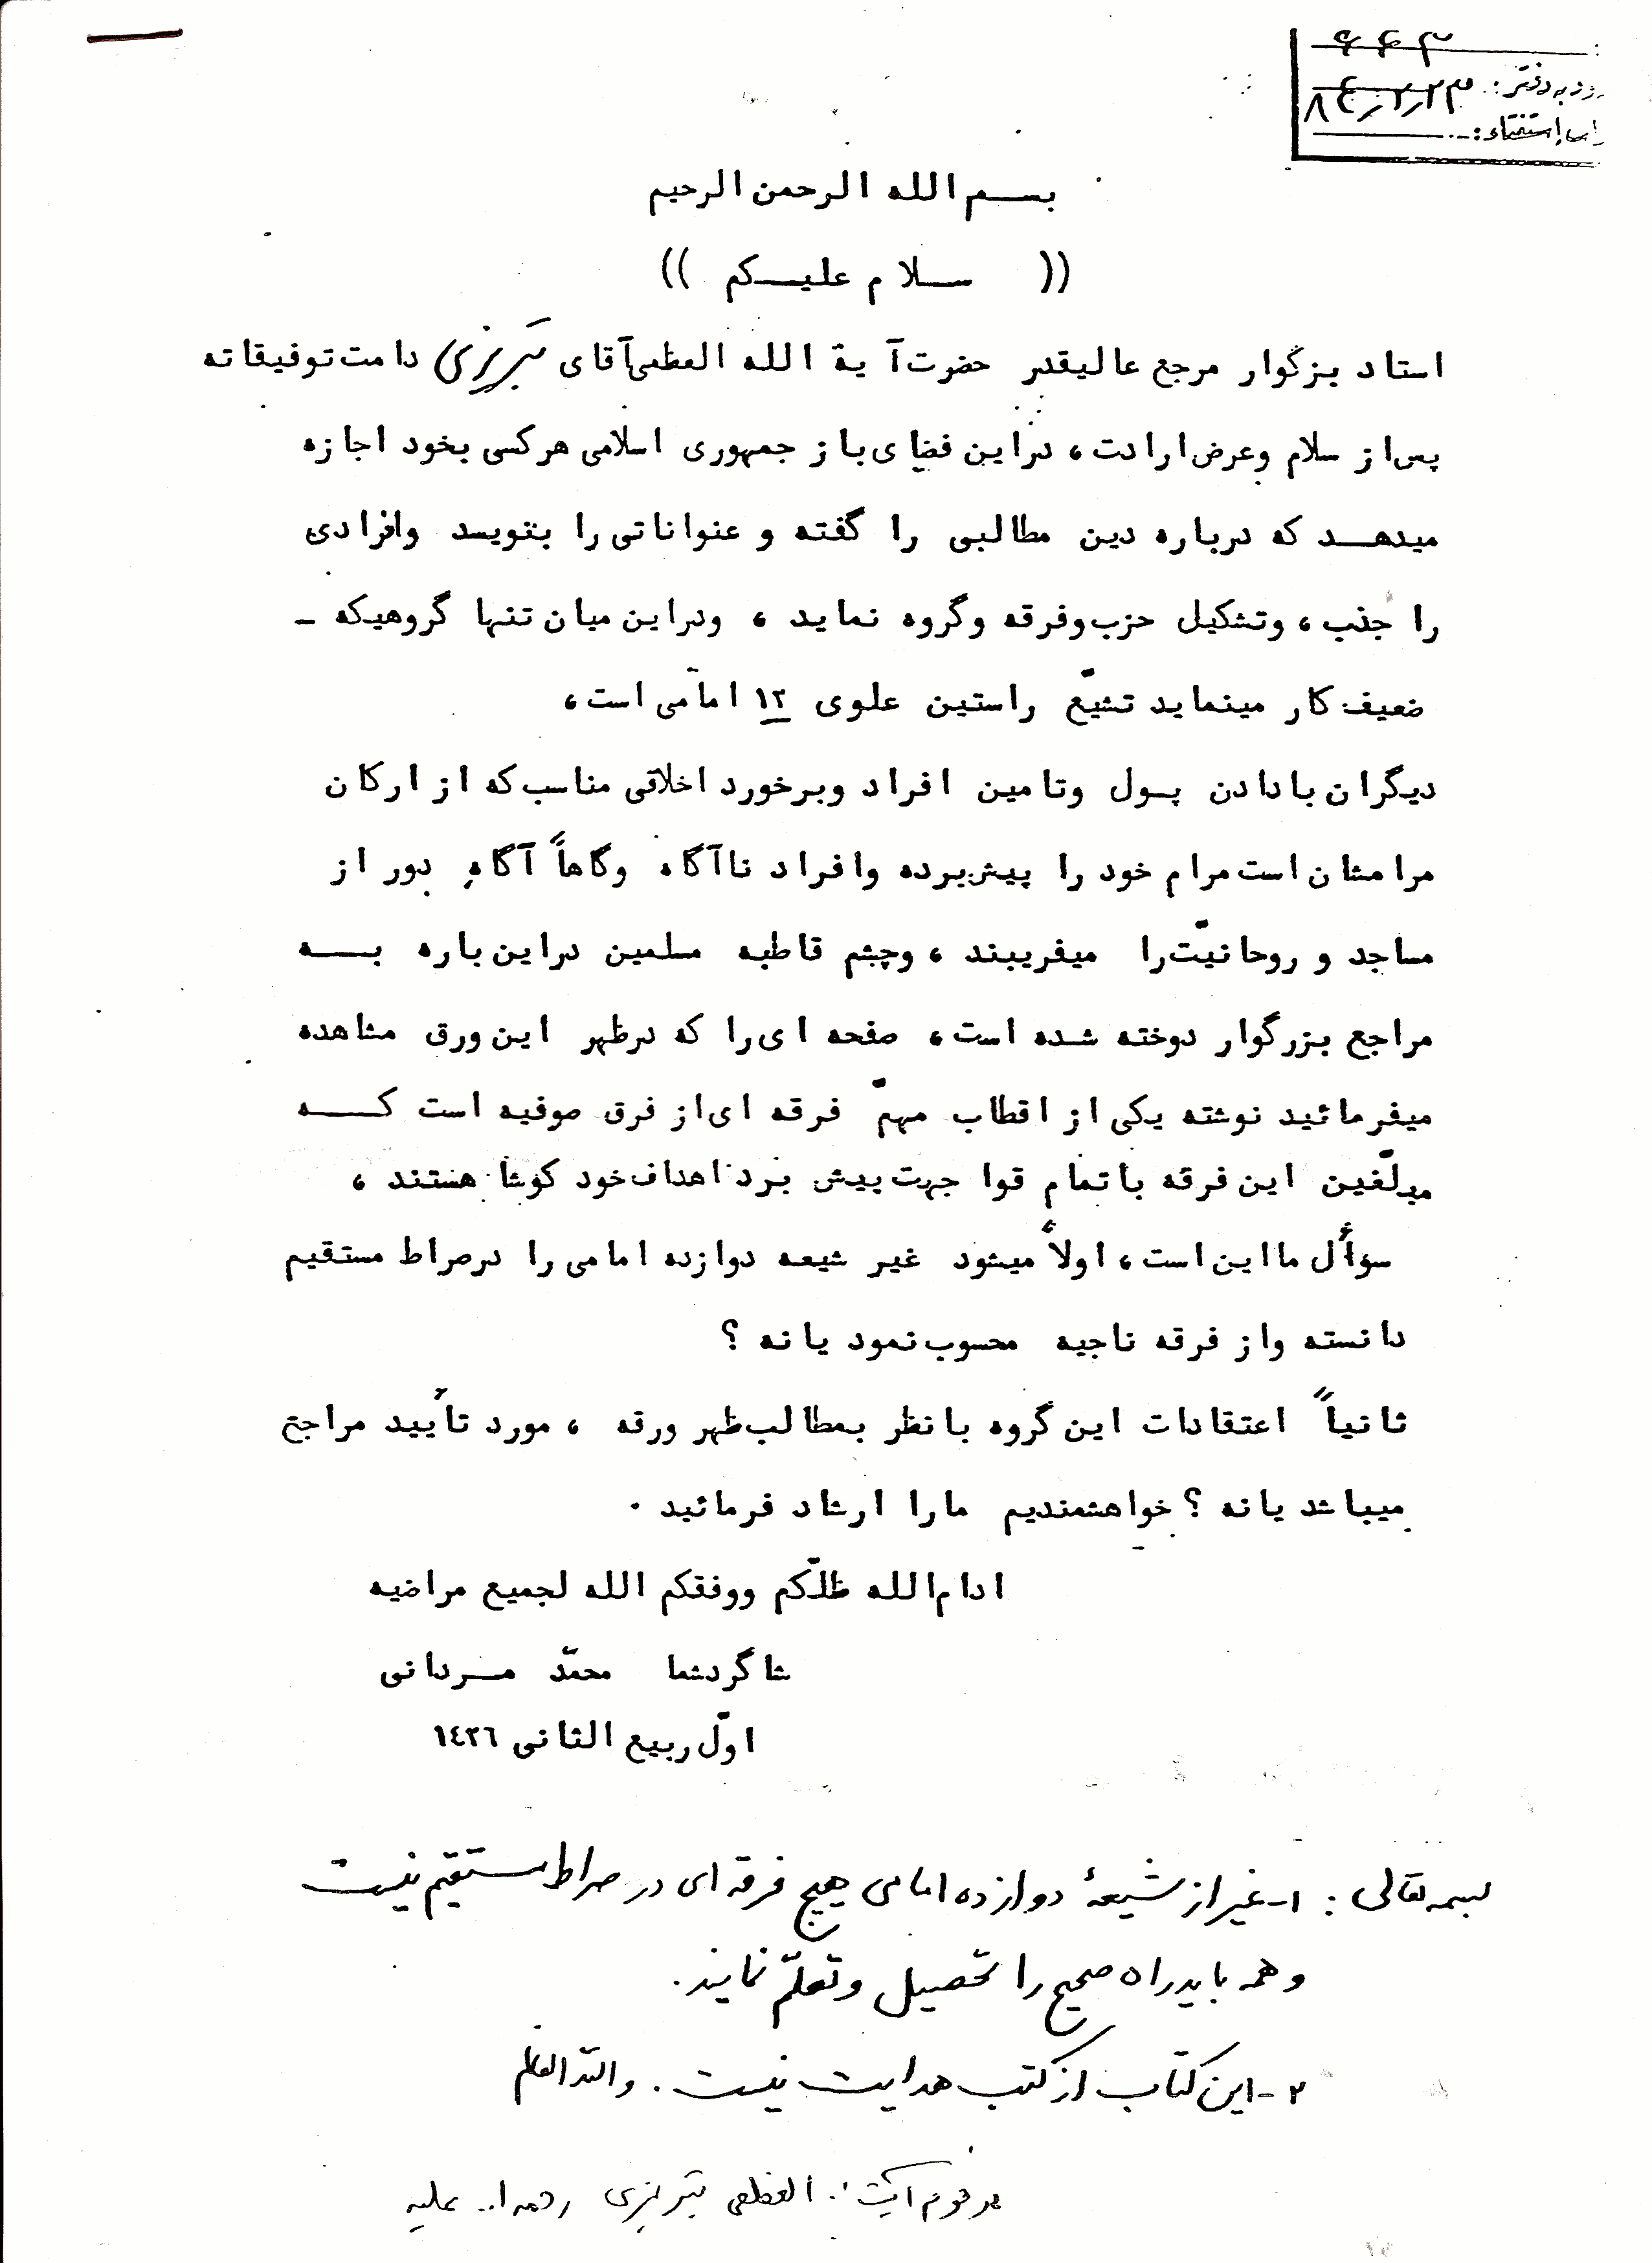 ۶۶۳
ود به دفتر: ۸۴٫۲٫۲۳
استفتاء:
بسم الله الرحمن الرحیم
(( سلام علیکم ))
استاد بزگوار مرجع عالیقدر حضرت آیة الله العظمی آقای تبریزی دامت توفیقاته
پس از سلام وعرض ارادت، دراین فضای باز جمهوری اسلامی هرکسی بخود اجازه
میدهد که درباره دین مطالبی را گفته و عنواناتی را بنویسد وافرادی
را جذب، وتشکیل حزب وفرقه وگروه نماید، ودراین میان تنها گروهیکه -
ضعیف کار مینماید تشیّع راستین علوی ۱۲ امامی است،
دیگران بادادن پول وتامین افراد وبرخورد اخلاقی مناسب که از ارکان
مرامشان است مرام خود را پیش برده وافراد ناآگاه وگاهاً آگاه بدور از
مساجد و روحانیّت را میفریبند، وچشم قاطبه مسلمین دراین باره به
مراجع بزرگوار دوخته شده است، صفحه ای را که درظهر این ورق مشاهده
میفرمائید نوشته یکی از اقطاب مهمّ فرقه ای از فرق صوفیه است که
مبلّغین این فرقه باتمام قوا جهت پیش برد اهداف خود کوشا هستند،
سؤأل ما این است، اولاً میشود غیر شیعه دوازده امامی را درصراط مستقیم
دانسته واز فرقه ناجیه محسوب نمود یا نه ؟
ثانیاً اعتقادات این گروه بانظر بمطالب ظهر ورقه، مورد تأیید مراجع
میباشد یا نه ؟ خواهشمندیم مارا ارشاد فرمائید .
ادام الله ظلّکم ووفقکم الله لجمیع مراضیه
شاگردشما محمّد مردانی
اوّل ربیع الثانی ١٤٢٦
بسمه تعالی : ۱- غیر از شیعهٔ دوازده امامی هیچ فرقه ای در صراط مستقیم نیست
و همه باید راه صحیح را تحصیل و تعلّم نمایند.
۲- این کتاب از کتب هدایت نیست . والله العالم
مرحوم آیت ا.. العظمی تبریزی رحمه ا.. علیه